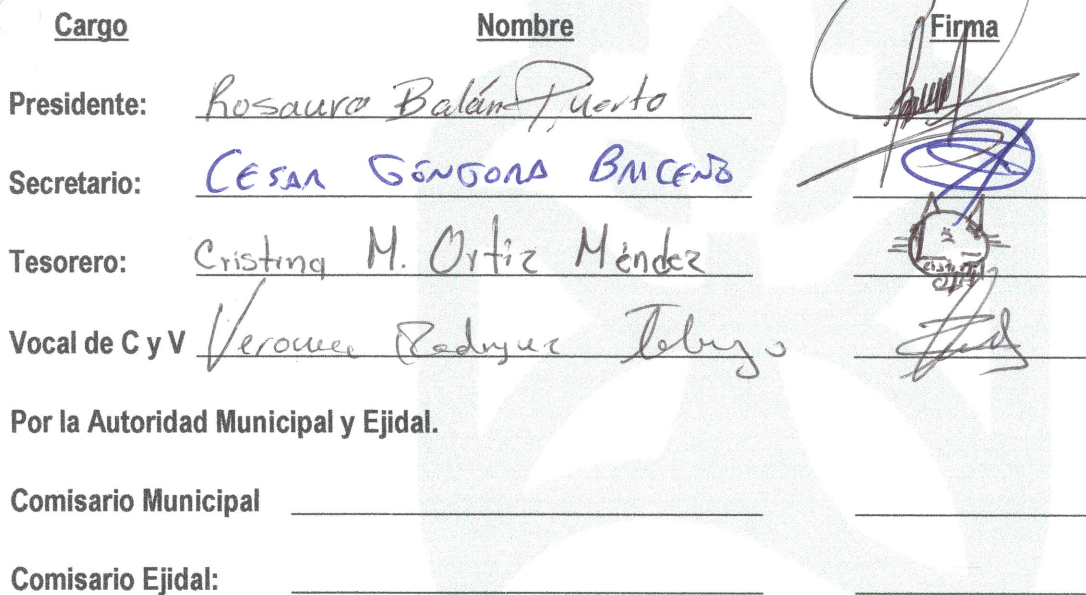 Cargo Nombre Firma
Presidente: Rosaura Balám Puerto
Secretario: CESAR GÓNGORA BRICEÑO
Tesorero: Cristina M. Ortiz Méndez
Vocal de C y V Veronica Rodriguez
Por la Autoridad Municipal y Ejidal.
Comisario Municipal
Comisario Ejidal: